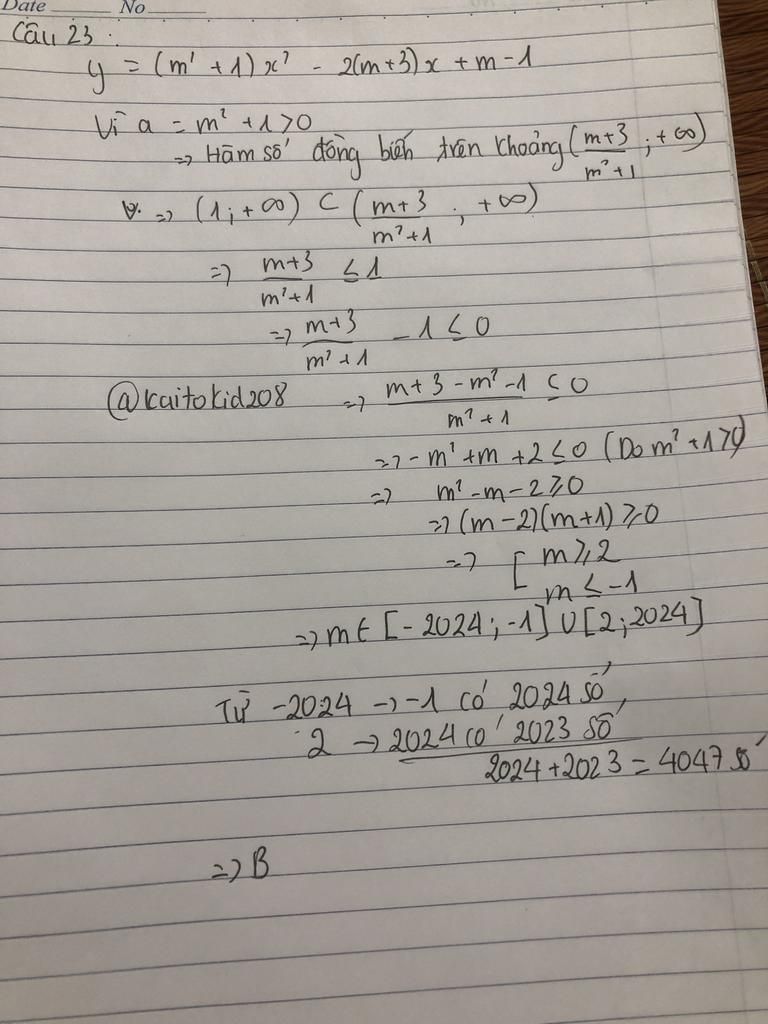 Date No
Câu 23:
y = (m² + 1)x² - 2(m+3)x + m - 1
Vì a = m² + 1 > 0
=> Hàm số đồng biến trên khoảng (m+3/m²+1 ; +∞)
=> (1; +∞) ⊂ (m+3/m²+1 ; +∞)
=> m+3/m²+1 ≤ 1
=> m+3/m²+1 - 1 ≤ 0
@kaitokid208 => m+3-m²-1/m²+1 ≤ 0
=> -m² + m + 2 ≤ 0 (Do m² + 1 > 0)
=> m² - m - 2 ≥ 0
=> (m-2)(m+1) ≥ 0
=> [ m ≥ 2
m ≤ -1
=> m ∈ [-2024; -1] ∪ [2; 2024]
Từ -2024 -> -1 có 2024 số,
2 -> 2024 có 2023 số
2024 + 2023 = 4047 số
=> B